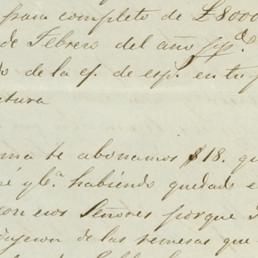 para completo de £8000
de Febrero del año ppdo
de la cf. de esp. en tu p
tura
ma te abonamos $18. qu
é y Ca. habiendo quedado e
con esos Señores porque
de las remesas que